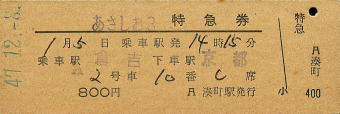 あさしお3 特急券
1月5日 乗車駅発 14時15分
乗車駅 下車駅 京都
2号車 10番 C席
800円 月湊町駅発行
47.12.-6
特急
月湊町
小 400